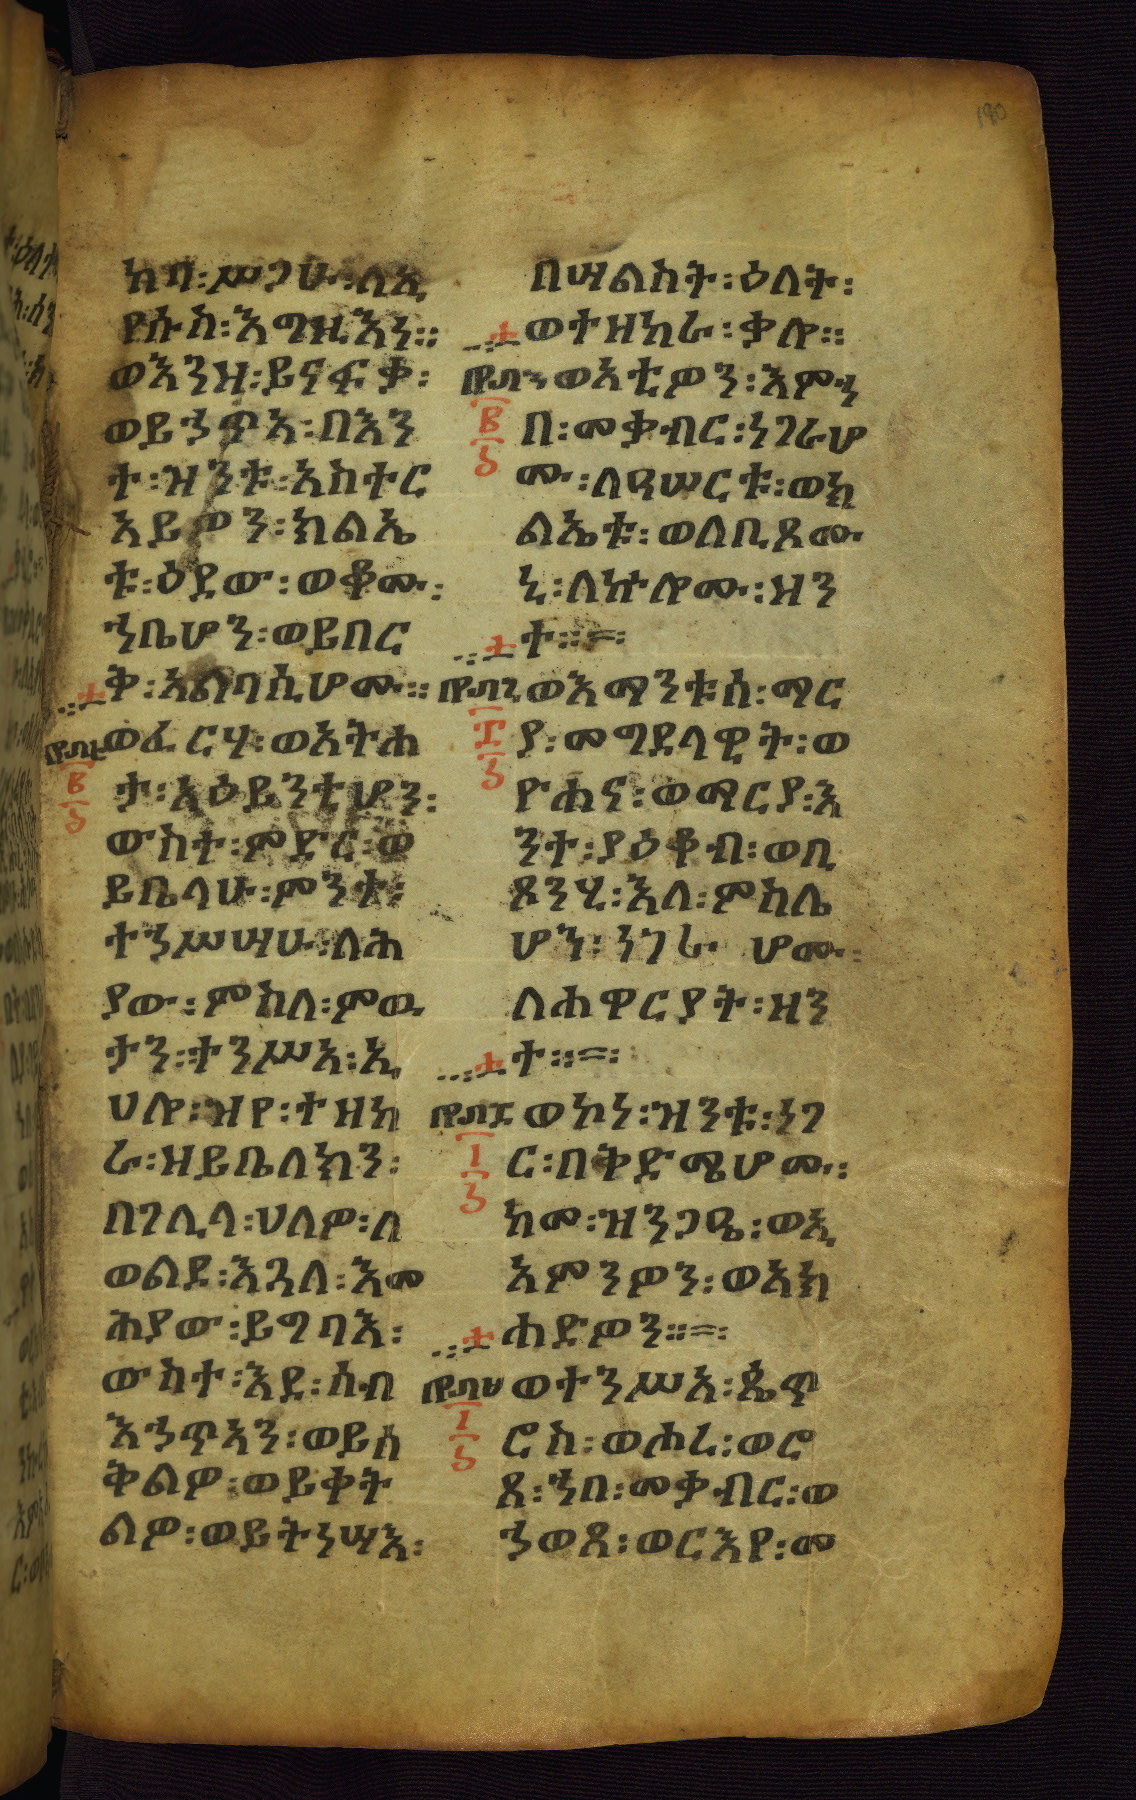 ከባ፡ሥጋሁ፡ለኢ
የሱስ፡እግዚእነ።
ወእንዝ፡ይናፍቃ፡
ወይኀጥኣ፡በእን
ተ፡ዝንቱ፡አስተር
አይዎን፡ክልኤ
ቱ፡ዕደው፡ወቆሙ፡
ኀቤሆን፡ወይበር
ቅ፡አልባሲሆሙ።
ወፈርሃ፡ወአትሐ
ታ፡አዕይንቲሆን፡
ውስተ፡ምድር፡ወ
ይቤላሁ፡ምንተ፡
ተኀሥሣሁ፡ለሕ
ያው፡ምስለ፡ምዉ
ታን፡ተንሥአ፡ኢ
ሀሎ፡ዝየ፡ተዘከ
ራ፡ዘይቤለክን፡
በገሊላ፡ሀለዎ፡ለ
ወልደ፡እጓለ፡እመ
ሕያው፡ይግባእ፡
ውስተ፡እደ፡ሰብ
እ፡ኀጥኣን፡ወይሰ
ቅልዎ፡ወይቀት
ልዎ፡ወይትነሣእ፡
በሣልስት፡ዕለት፡
ወተዘከራ፡ቃሎ።
ወአቲዎን፡እምኀ
በ፡መቃብር፡ነገራሆ
ሙ፡ለዓሠርቱ፡ወክ
ልኤቱ፡ወለቢጾሙ
ኒ፡ለኵሎሙ፡ዘን
ተ።=፡
ወእማንቱሰ፡ማር
ያ፡መግደላዊት፡ወ
ዮሐና፡ወማርያ፡እ
ንተ፡ያዕቆብ፡ወቢ
ጾንሂ፡እለ፡ምስሌ
ሆን፡ነገራ ሆሙ፡
ለሐዋርያት፡ዘን
ተ።=፡
ወኮነ፡ዝንቱ፡ነገ
ር፡በቅድሜሆሙ፡
ከመ፡ዝንጋዔ፡ወኢ
አምንዎን፡ወአክ
ሐድዎን።=፡
ወተንሥአ፡ጴጥ
ሮስ፡ወሖረ፡ወሮ
ጸ፡ኀበ፡መቃብር፡ወ
ኀወጸ፡ወርእየ፡መ